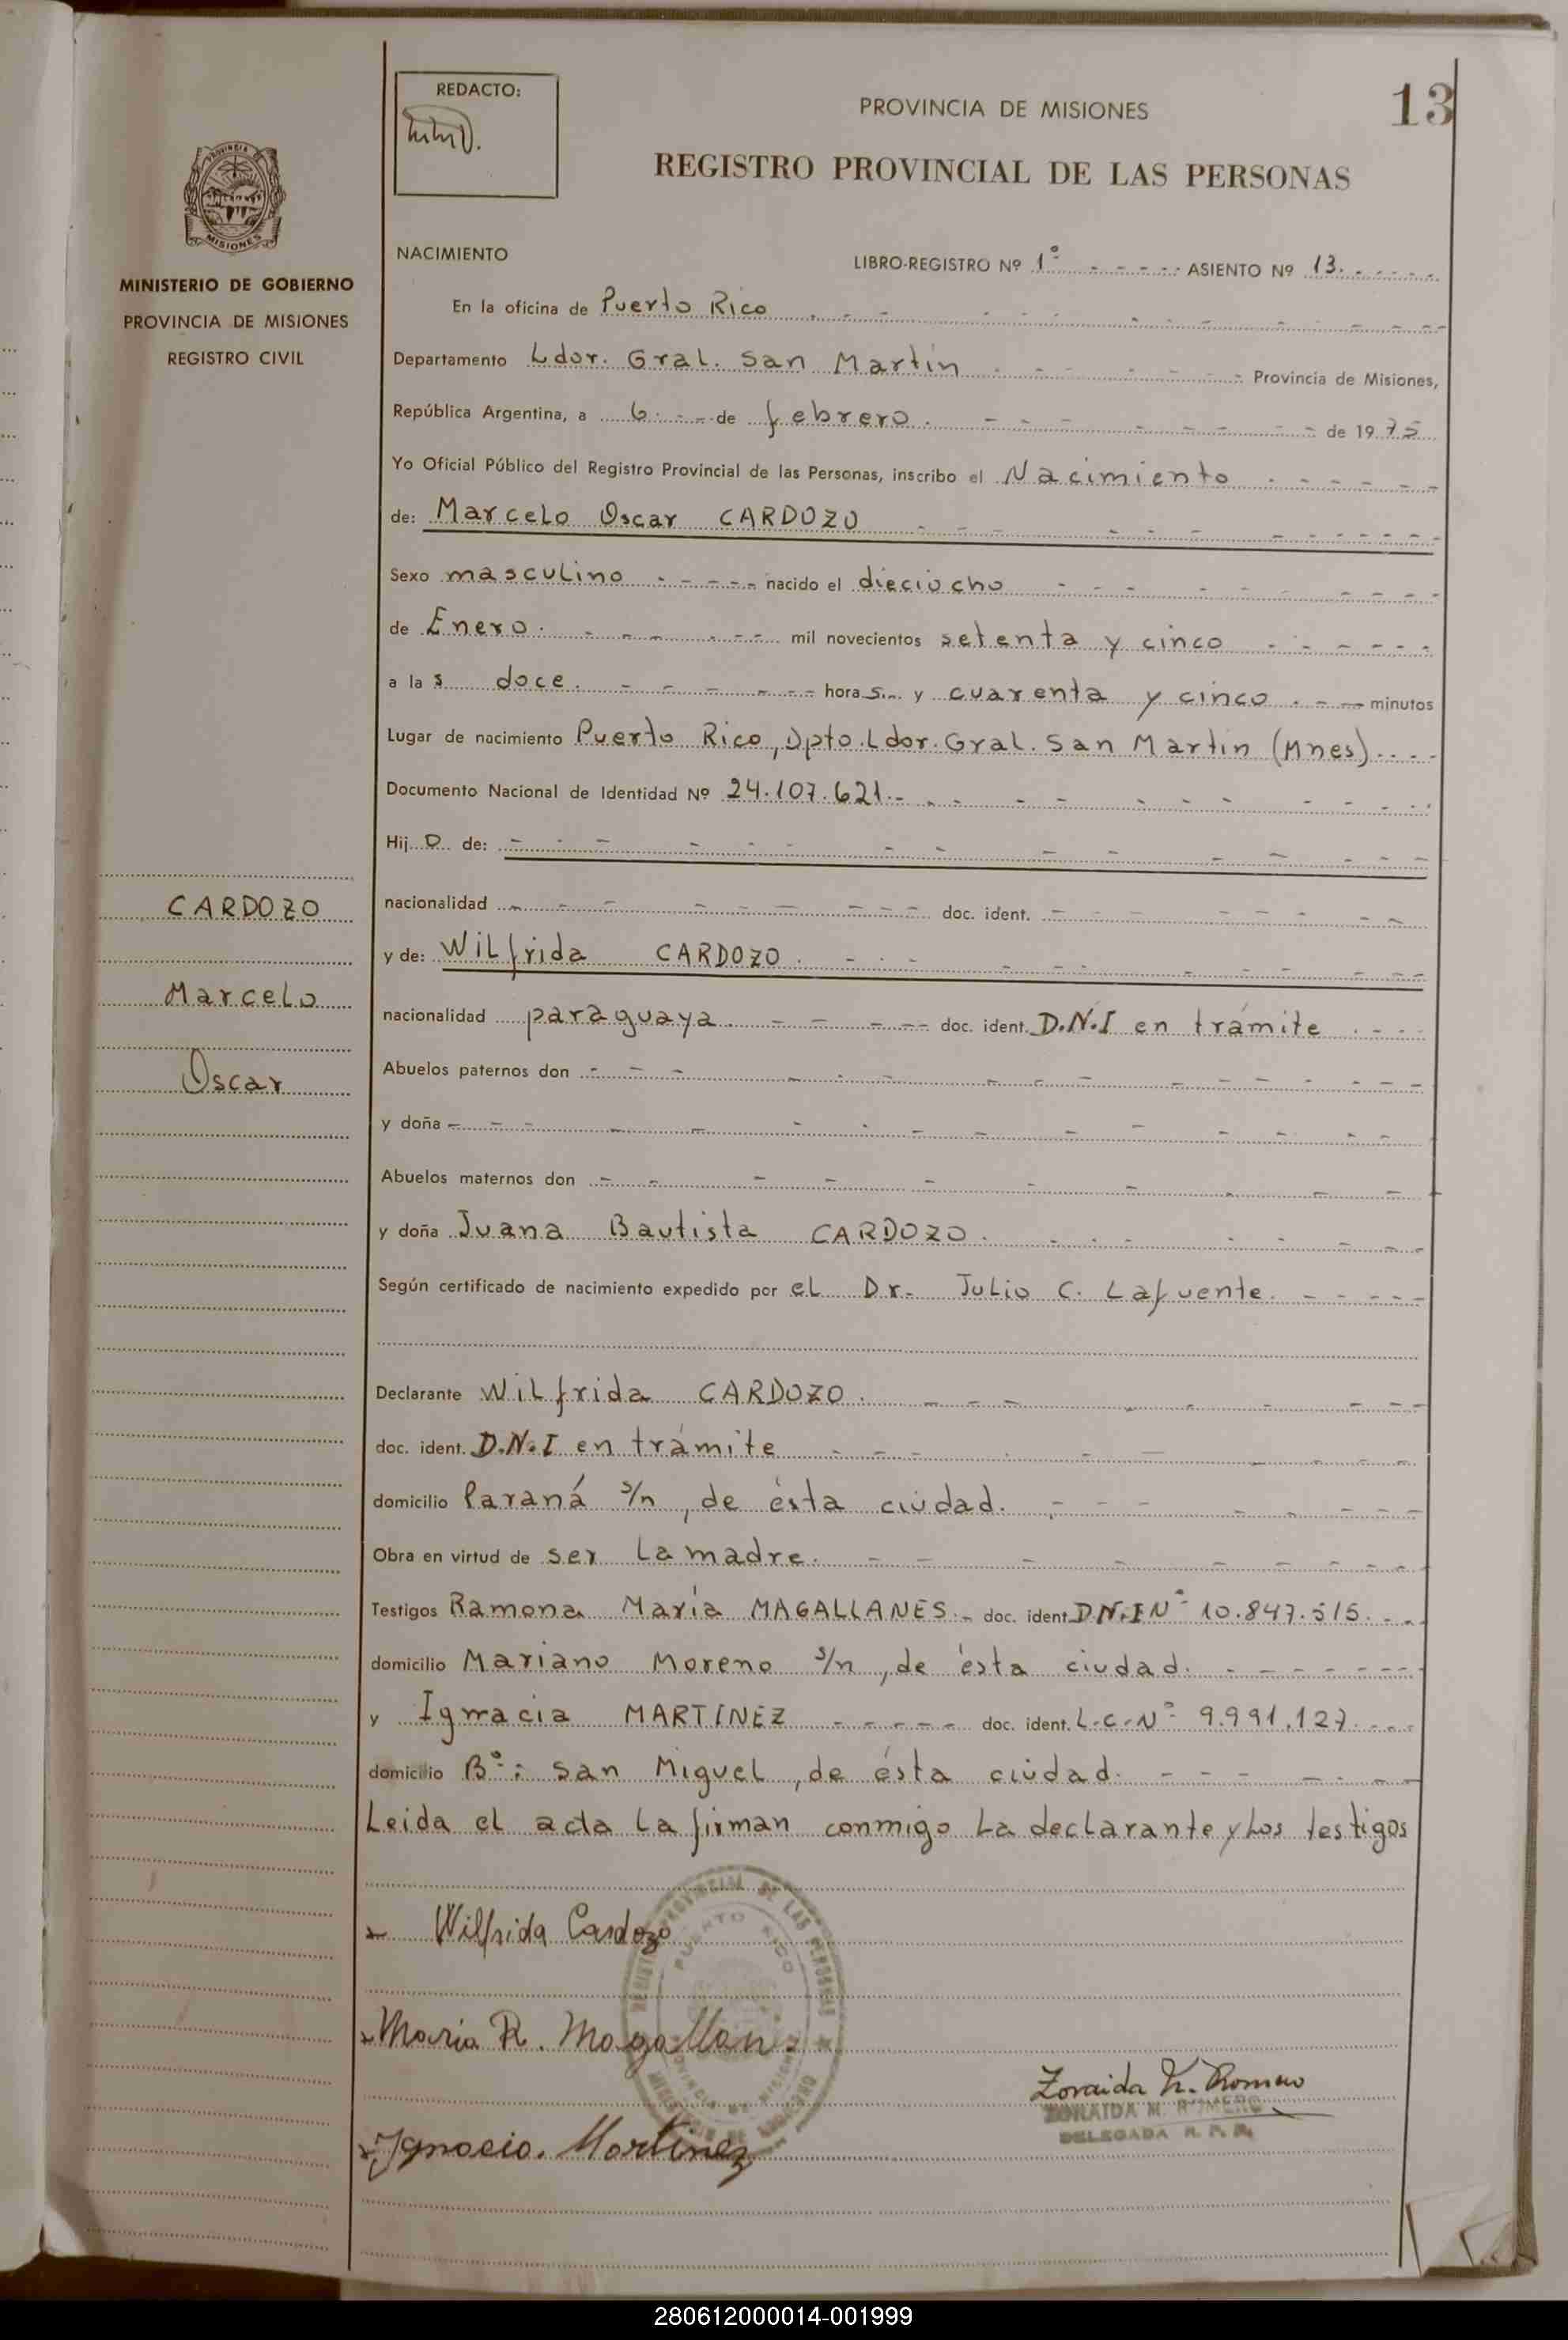 REDACTO:
PROVINCIA DE MISIONES
13
REGISTRO PROVINCIAL DE LAS PERSONAS
PROVINCIA DE
MISIONES
MINISTERIO DE GOBIERNO
PROVINCIA DE MISIONES
REGISTRO CIVIL
NACIMIENTO
LIBRO-REGISTRO Nº 1º - - - - - ASIENTO Nº 13. - - - - -
En la oficina de Puerto Rico
Departamento Ldor. Gral. San Martín - - - Provincia de Misiones,
República Argentina, a 6 - - de febrero. - - - de 1975
Yo Oficial Público del Registro Provincial de las Personas, inscribo el Nacimiento
de: Marcelo Oscar CARDOZO
Sexo masculino - - - - nacido el dieciocho
de Enero. - - - - mil novecientos setenta y cinco
a las doce. - - - - horas y cuarenta y cinco - - - minutos
Lugar de nacimiento Puerto Rico, Dpto. Ldor. Gral. San Martín (Mnes)
Documento Nacional de Identidad Nº 24.107.621.-
Hijo de: - - -
nacionalidad - - - doc. ident. - - -
y de: Wilfrida CARDOZO.
nacionalidad paraguaya. - - - doc. ident. D.N.I en trámite
Abuelos paternos don - - -
y doña - - -
Abuelos maternos don - - -
y doña Juana Bautista CARDOZO.
Según certificado de nacimiento expedido por el Dr. Julio C. Lafuente.
Declarante Wilfrida CARDOZO.
doc. ident. D.N.I en trámite
domicilio Paraná s/n, de ésta ciudad.
Obra en virtud de ser la madre.
Testigos Ramona María MAGALLANES.- doc. ident D.N.I Nº 10.847.515.
domicilio Mariano Moreno s/n, de ésta ciudad.
y Ignacia MARTINEZ - - - - - doc. ident. L.C. Nº 9.991.127
domicilio Bº: San Miguel, de ésta ciudad.
Leida el acta la firman conmigo la declarante y los testigos
CARDOZO
Marcelo
Oscar
Wilfrida Cardozo
PUERTO RICO
Maria R. Magallanes
Zoraida M. Romero
ZORAIDA M. ROMERO
DELEGADA R. P. P.
Ignacia. Martinez
280612000014-001999